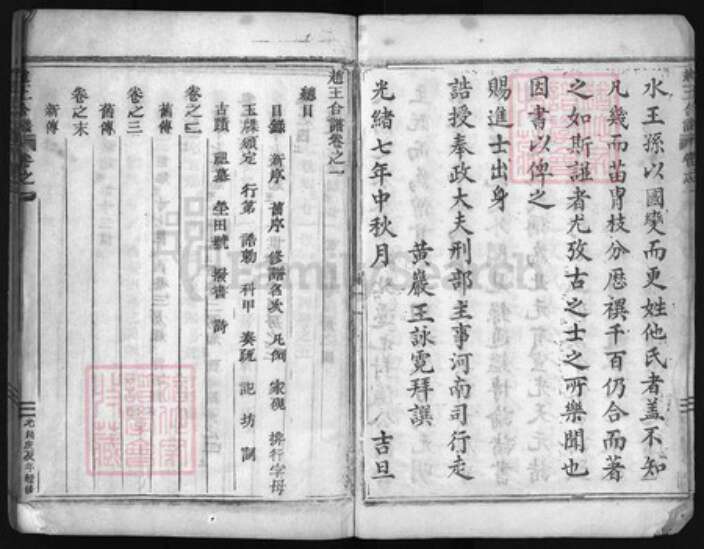 水王孫以國變而更姓他氏者蓋不知
凡幾而苗胄枝分歷禩千百仍合而著
之如斯譜者尤攷古之士之所樂聞也
因書以俾之
賜進士出身
誥授奉政大夫刑部主事河南司行走
黃巖王詠霓拜譔
光緒七年中秋月 吉旦
趙王合譜卷之一
總目
目錄 新序 舊序 修譜名次 凡例 家規 排行字母
玉牒頒定 行第 誥勅 科甲 奏疏 記 坊 制
古蹟 祖墓 塋田號 書 詩
卷之二
舊傳
卷之三
舊傳
卷之末
新傳
趙王合譜 卷之一
FamilySearch